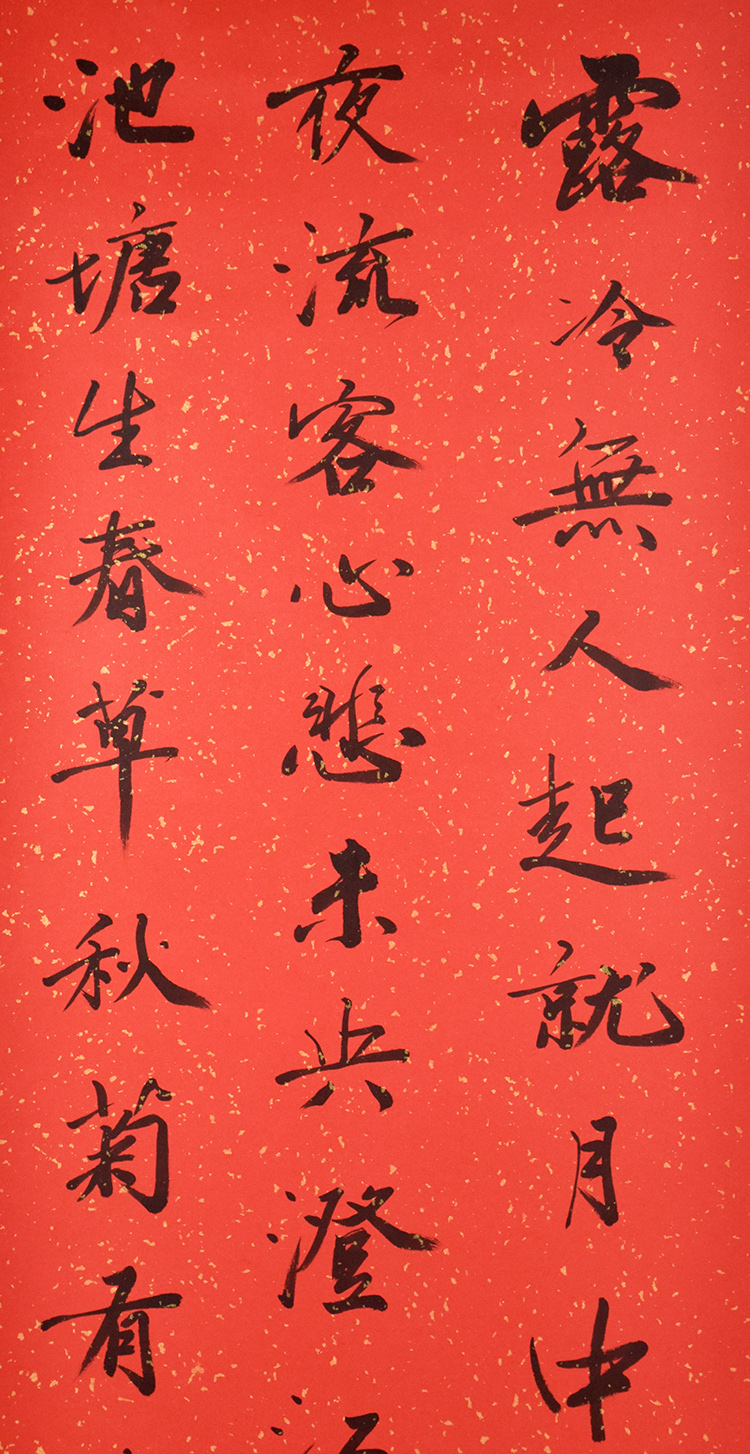 露冷無人起就月中
夜流客心悲未央澄
池塘生春草秋菊有